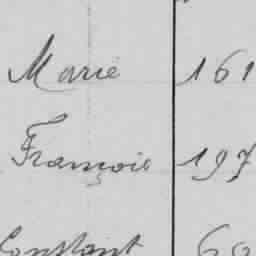 Marie 161
François 197
Constant 60